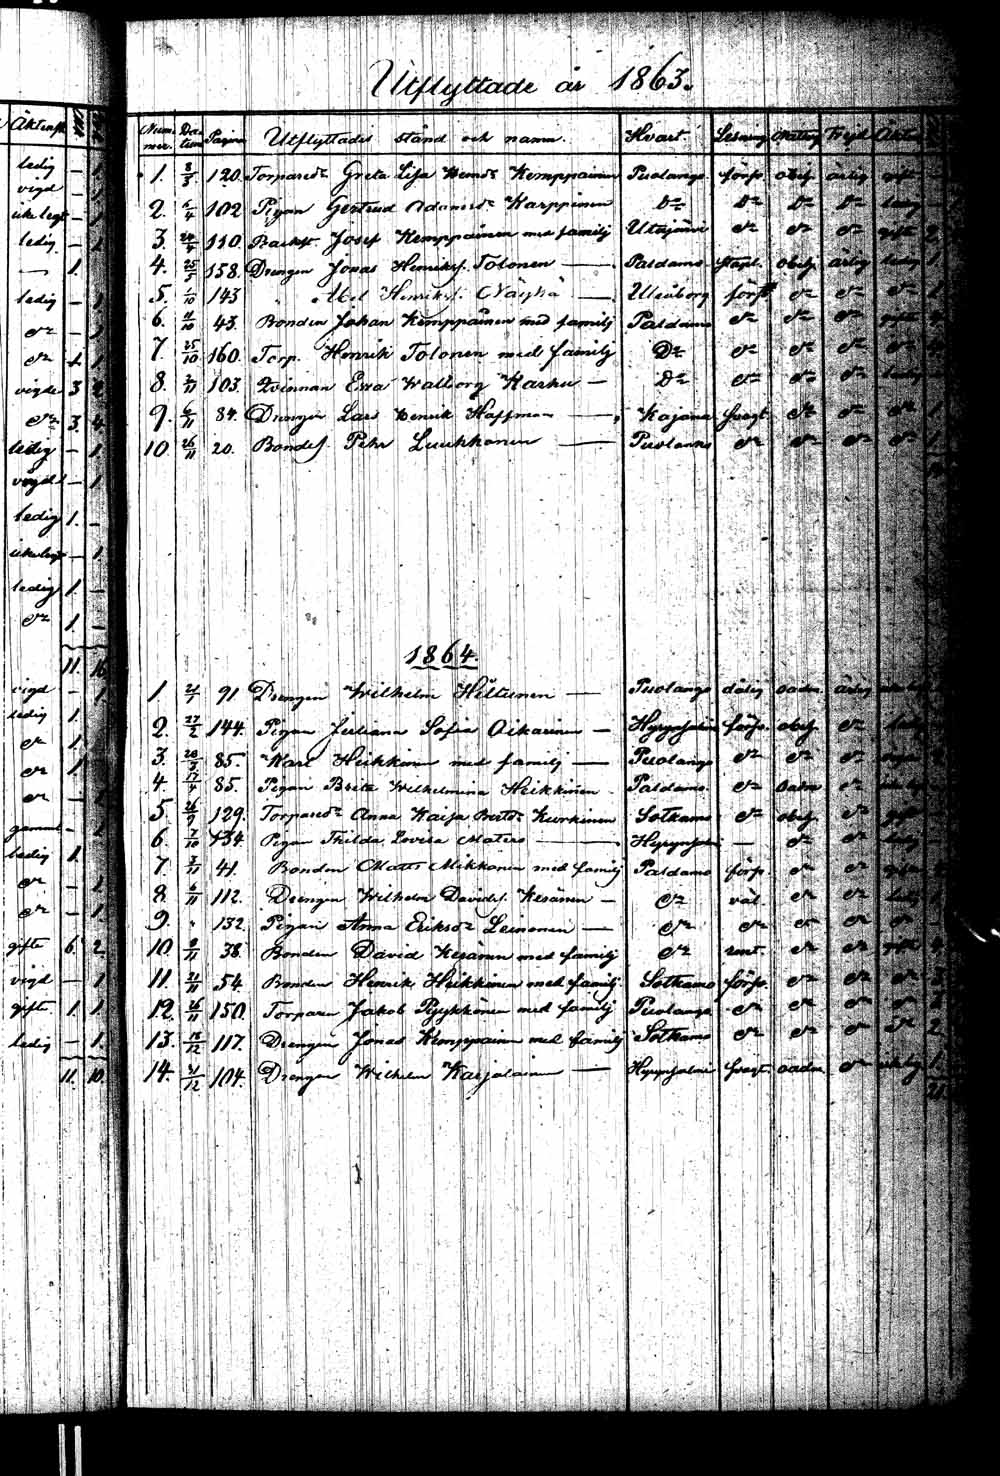 Utflyttade år 1863.
Nummer. Datum Pagina Utflyttades stånd och namn. Hvart. Läsning Nattv. Frejd Äktensk.
1. 8/3 120. Torparedr Greta Lisa Hemdr Kemppainen Puolango försv. obeh. ärlig gift
2. 6/4 102 Pigan Gertrud Adamsdr Karppinen Do Do Do Do ledig
3. 24/4 110. Backst. Josef Kemppainen med familj Utajärvi do do do gifte 2.
4. 25/5 158. Drengen Jonas Henrikss. Tolonen — Paldamo obeh. ärlig ledig 1.
5. /10 143 " Abel Henrikss. — Uleåborg förs. do do do 1.
6. 11/10 43. Bonden Johan Kemppainen med familj Paldamo do do do gifte
7. 25/10 160. Torp. Henrik Tolonen med familj Do do do do do
8. 2/11 103. Qvinnan Ewa Walborg Karhu — Do do do do ledig
9. 6/11 84. Drengen Lars Henrik Hoffman — Kajana svagt. do do do
10. 26/11 20. Bondes. Pehr Luukkonen — Puolanko do do do do
1864.
1. 21/1 91 Drengen Wilhelm Hiltunen — Puolango dålig oadm. ärlig
2. 27/2 144. Pigan Juliana Sofia Oikarinen — Hyrynsalmi förs. obeh. do ledig
3. 20/3 85. Karl Heikkinen med familj — Puolango do do do
4. 17/4 85. Pigan Brita Wilhelmina Heikkinen Paldamo. do oadm do
5. 26/9 129. Torparedr Anna Kaisa Bertdr Kurkinen Sotkamo do obeh. do gift
6. 7/10 134. Pigan Thilda Lovisa Matero — Hyrynsalmi — do do ledig
7. 2/11 41. Bonden Matts Mikkonen med familj Paldamo förs. do do gifte
8. 6/11 112. Drengen Wilhelm Davids. Kesänen — do väl. do do ledig
9. " 132. Pigan Anna Eriksdr Leinonen — do do do do do
10. 9/11 38. Bonden David Kesänen med familj do do do gifte 4.
11. 21/11 54 Bonden Henrik Heikkinen med familj. Sotkamo förs. do do do 3.
12. 26/11 150. Torparen Jakob Pyykkönen med familj Puolango do do do do
13. 18/12 117. Drengen Jonas Kemppainen med familj Sotkamo do do do do 2.
14. 31/12 104. Drengen Wilhelm Karjalainen — Hyrynsalmi svagt oadm. do 1.
21.
Äktensk.
ledig — 1.
vigd — 1.
icke legt — 1.
ledig. — 1.
— 1.
ledig — 1.
do — 1.
do 1 1.
vigde 3 2.
do 3. 4.
ledig — 1.
vigd — 1.
ledig 1. —
icke legt — 1.
ledig 1. —
do 1. —
11. 16
vigd — 1.
ledig 1.
do 1.
do 1.
do — 1.
gammal — 1.
ledig 1.
do — 1.
do — 1.
gifte 6. 2.
vigd — 1
gifte 1. 1.
ledig — 1.
11. 10.